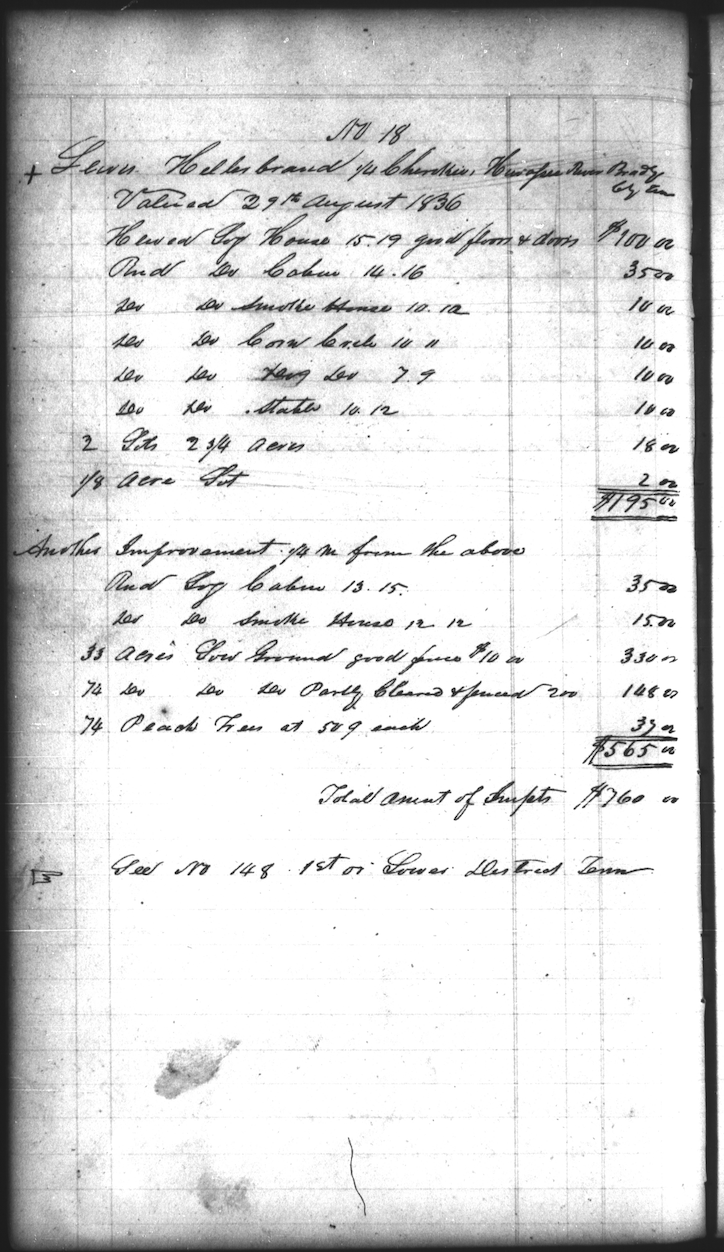 No 18
+ Lewis Hellebrand 1/4 Cherokee, Hiwassee River Bradly
Cty Ten
Valued 29th August 1836
Hewed Log House 15.19 good floors & doors $100 00
Rnd Do Cabin 14.16 35 00
Do Do Smoke House 10.12 10 00
Do Do Corn Crib 10 11 10 00
Do Do Do 7.9 10 00
Do Do Stable 10.12 10 00
2 Lots 2 3/4 acres 18 00
1/8 Acre Lot 2 00
$195 00
Another Improvement 1/4 m from the above
Rnd Log Cabin 13.15. 35 00
Do Do Smoke House 12 12 15.00
33 Acres Low Ground good fence $10 00 330 00
74 Do Do Do Partly Cleared & fenced 200 148 00
74 Peach Trees at 50¢ each 37 00
$565 00
Total Amont of Impts $760 00
See No 148 1st or Lower District Tenn